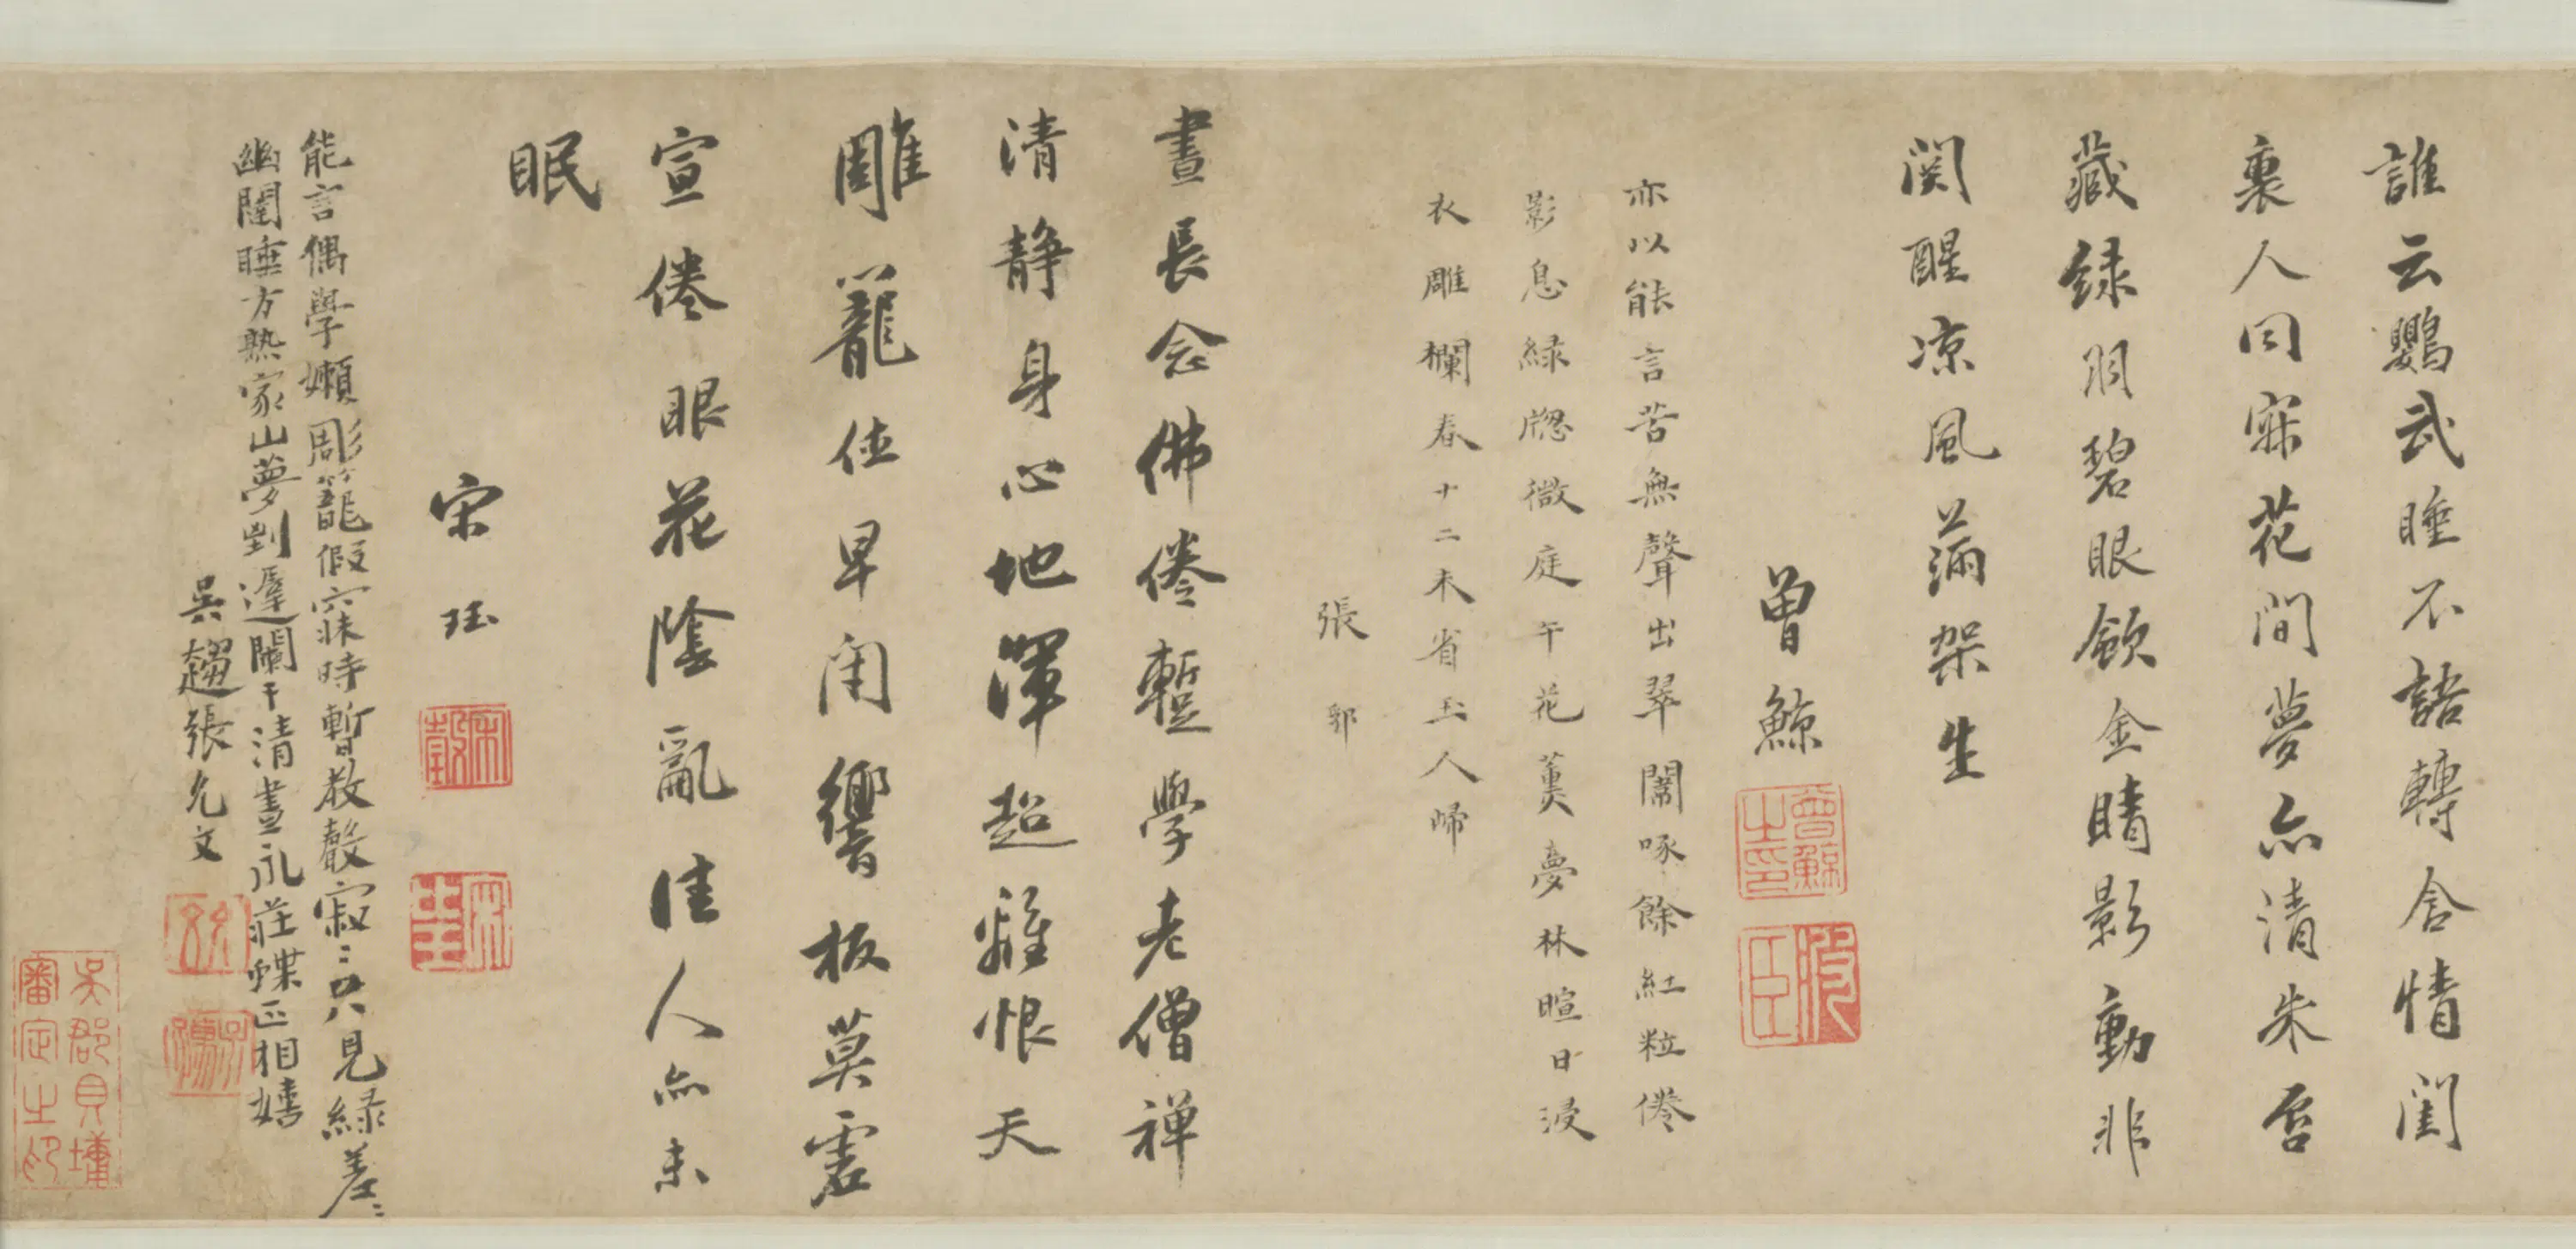 誰云鸚武睡不語轉含情閨
裏人同寐花間夢亦清朱唇
藏緑羽碧眼斂金睛影動非
関醒凉風滿架生
曾鯨
曾鯨之印
波臣
亦以能言苦無聲出翠闈啄餘紅粒倦
影息緑牕微庭午花薰夢林暄日浸
衣雕欄春十二未省玉人歸
張郭
晝長念佛倦蹔學老僧禅
清静身心地渾超離恨天
雕籠值早閑響板莫虛
宣倦眼花陰亂佳人亦未
眠
宋珏
宋瑴
能言偶學嬾彫籠假寐時暫教聲寂〻只見緑差〻
幽閨睡方熟家山夢到遲闌干清晝永莊蝶正相嬉
吳趨張允文
吳郡貝墉
審定之印